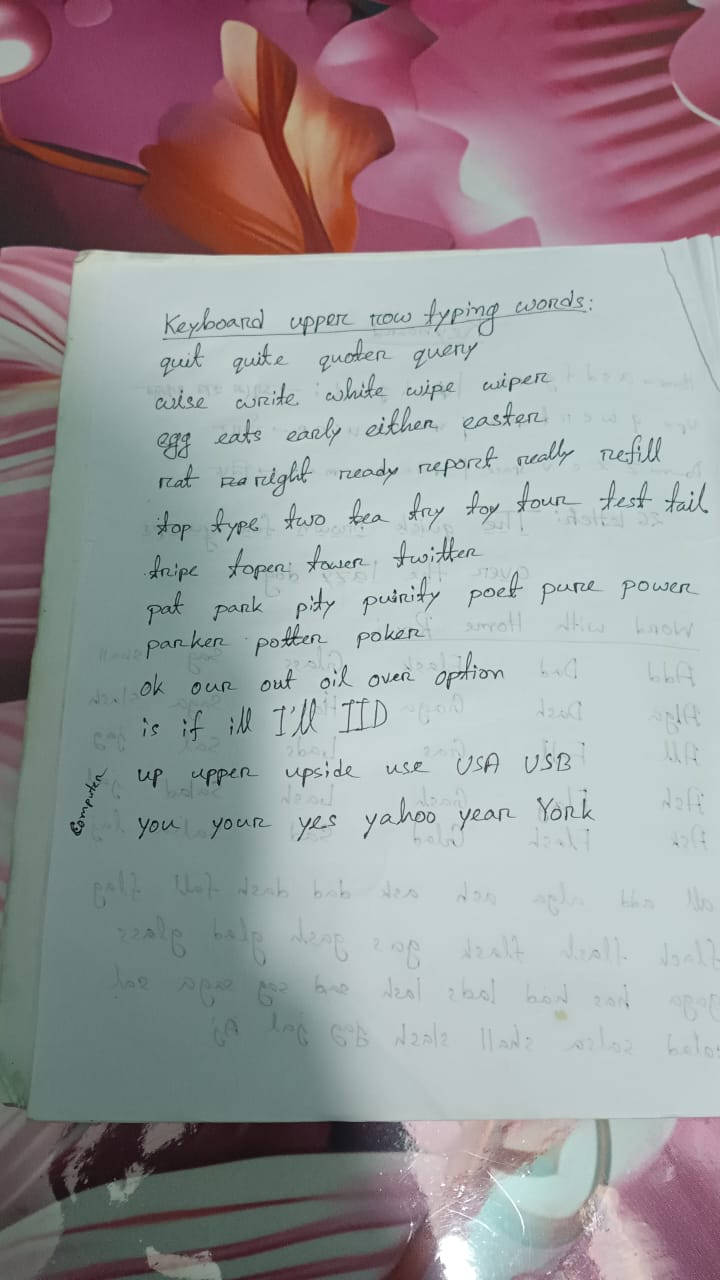 Keyboard upper row typing words:
quit quite quoter query
wise write white wipe wiper
egg eats early either easter
rat right ready report really refill
top type two tea try toy tour test tail
tripe toper tower twitter
pat park pity puirity poet pure power
parker potter poker
ok our out oil over option
is if ill I'll IID
up upper upside use USA USB
Computer
you your yes yahoo year York